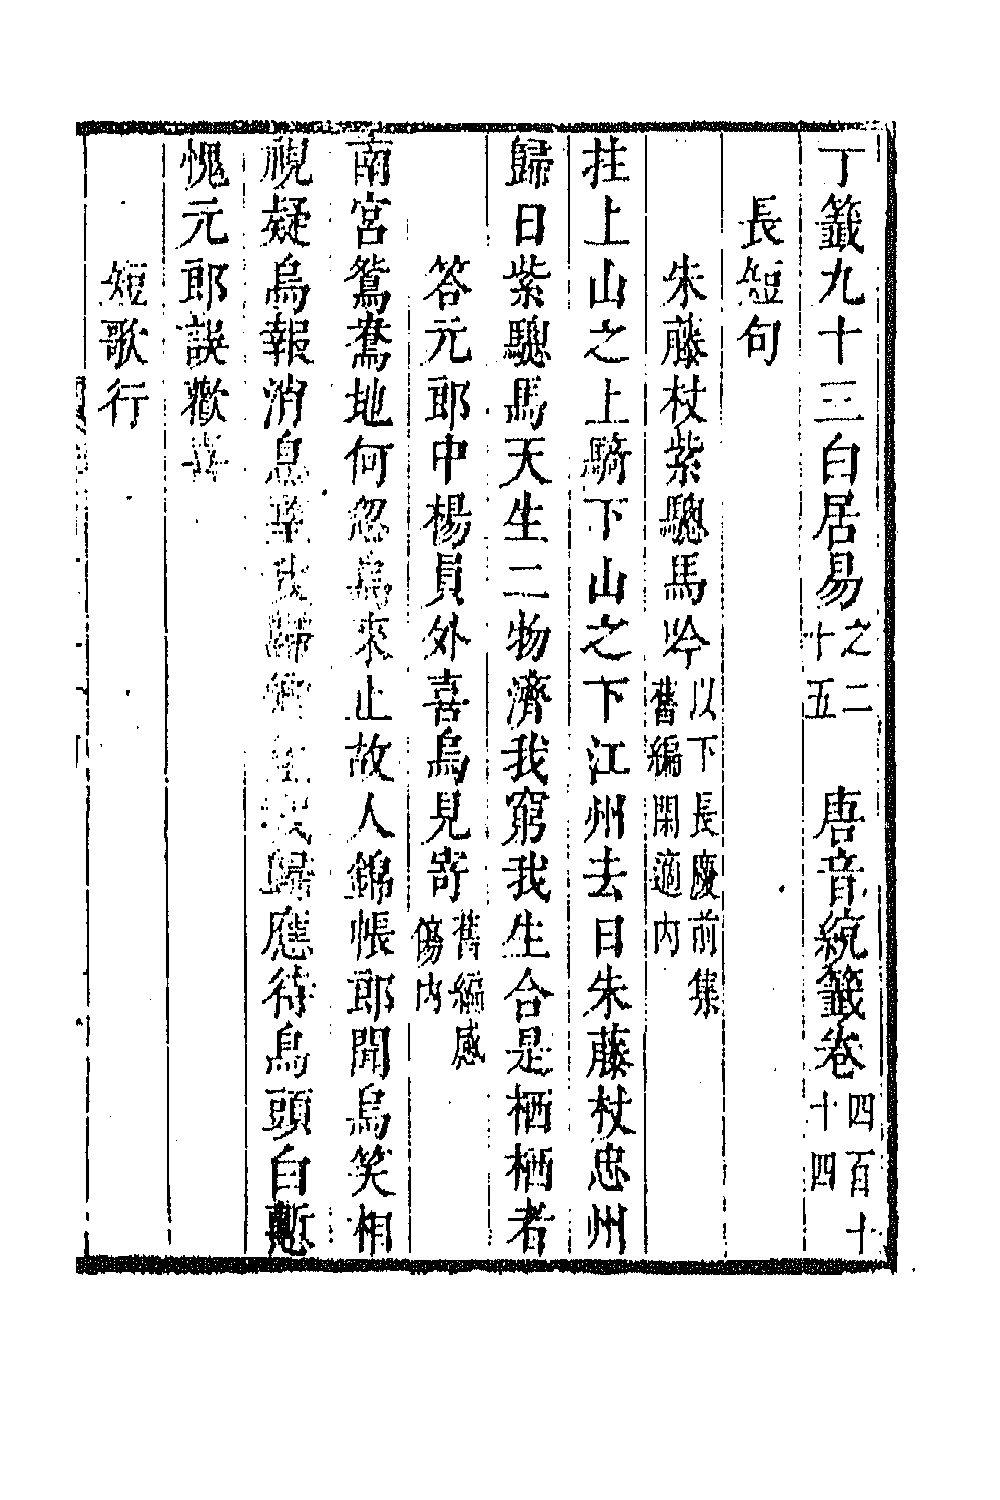 丁籖九十三白居易之二十五　唐音統籖卷四百十十四
長短句
朱藤杖紫驄馬吟以下長慶前集舊編閑適内
拄上山之上騎下山之下江州去日朱藤杖忠州
歸日紫驄馬天生二物濟我窮我生合是栖栖者
答元郎中楊員外喜烏見寄舊編感傷内
南宮鴛鴦地何忽烏來止故人錦帳郎聞烏笑相
視疑烏報消息望我歸鄉我歸應待烏頭白慙
愧元郎誤歡喜
短歌行